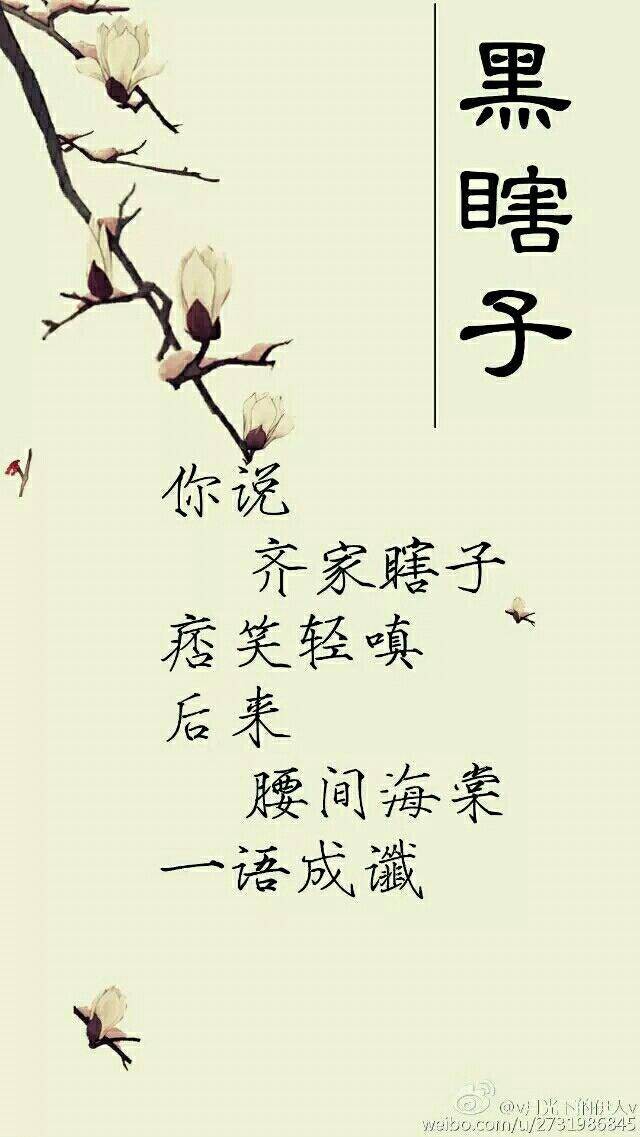 黑瞎子
你说
齐家瞎子
痞笑轻嗔
后来
腰间海棠
一语成谶
@v月光下的伊人v
weibo.com/u/2731986845